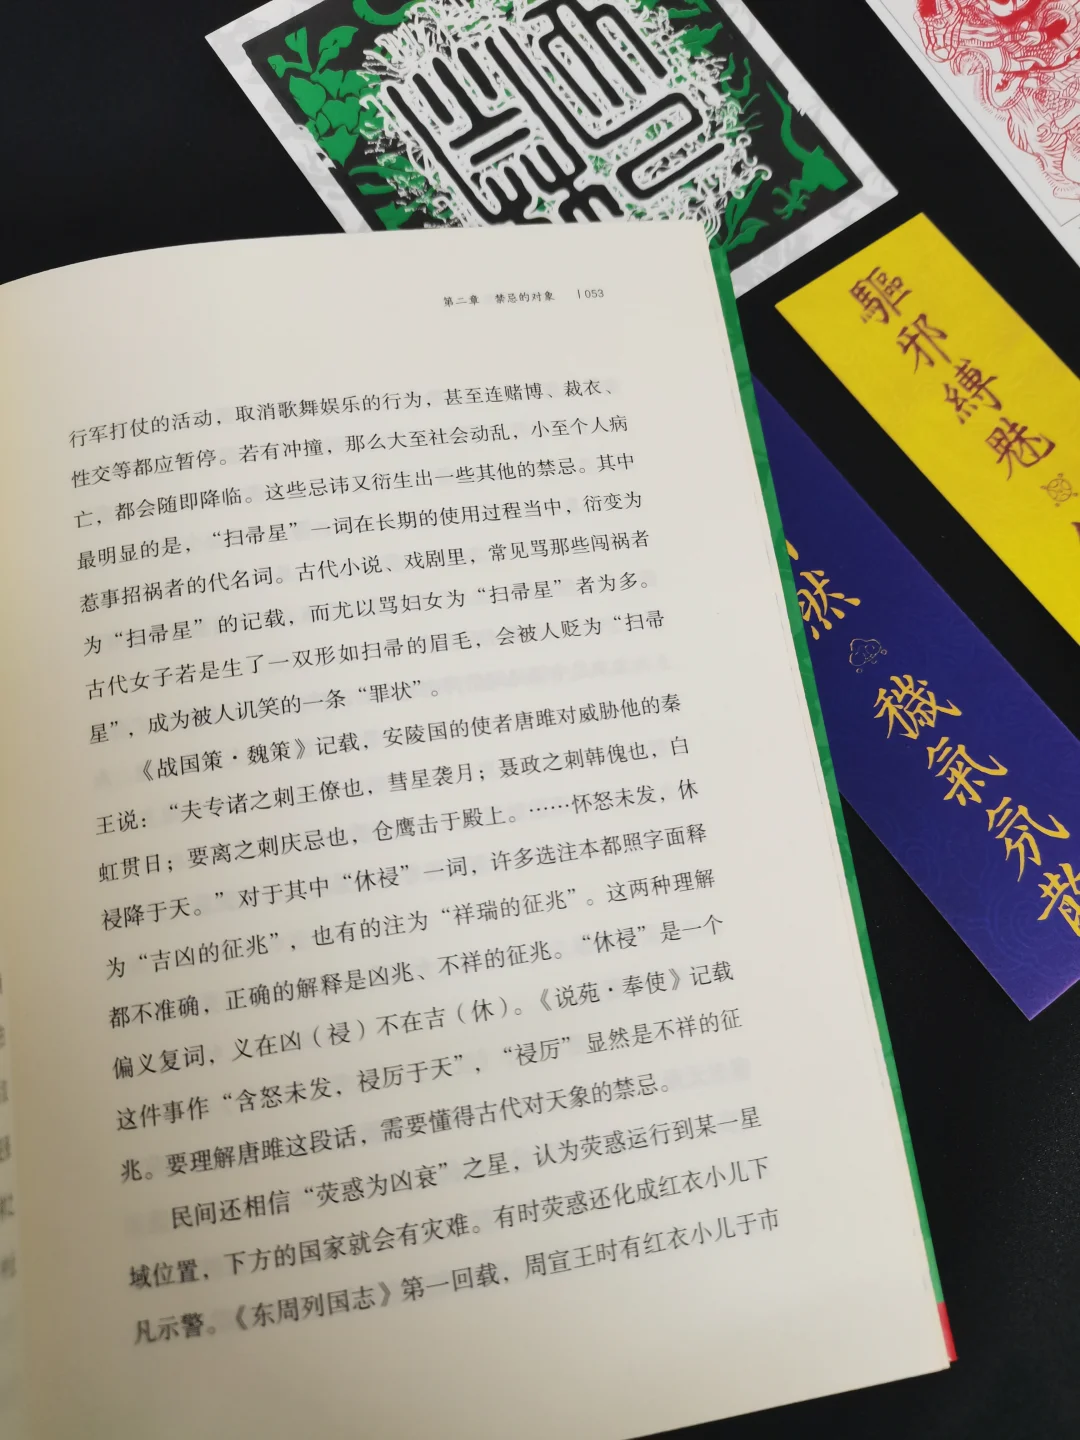 第二章 禁忌的对象 | 053
行军打仗的活动，取消歌舞娱乐的行为，甚至连赌博、裁衣、
性交等都应暂停。若有冲撞，那么大至社会动乱，小至个人病
亡，都会随即降临。这些忌讳又衍生出一些其他的禁忌。其中
最明显的是，“扫帚星”一词在长期的使用过程当中，衍变为
惹事招祸者的代名词。古代小说、戏剧里，常见骂那些闯祸者
为“扫帚星”的记载，而尤以骂妇女为“扫帚星”者为多。
古代女子若是生了一双形如扫帚的眉毛，会被人贬为“扫帚
星”，成为被人讥笑的一条“罪状”。
《战国策·魏策》记载，安陵国的使者唐雎对威胁他的秦
王说：“夫专诸之刺王僚也，彗星袭月；聂政之刺韩傀也，白
虹贯日；要离之刺庆忌也，仓鹰击于殿上。……怀怒未发，休
祲降于天。”对于其中“休祲”一词，许多选注本都照字面释
为“吉凶的征兆”，也有的注为“祥瑞的征兆”。这两种理解
都不准确，正确的解释是凶兆、不祥的征兆。“休祲”是一个
偏义复词，义在凶（祲）不在吉（休）。《说苑·奉使》记载
这件事作“含怒未发，祲厉于天”，“祲厉”显然是不祥的征
兆。要理解唐雎这段话，需要懂得古代对天象的禁忌。
民间还相信“荧惑为凶衰”之星，认为荧惑运行到某一星
域位置，下方的国家就会有灾难。有时荧惑还化成红衣小儿下
凡示警。《东周列国志》第一回载，周宣王时有红衣小儿于市
驅邪縛魅
然
穢氣氛散